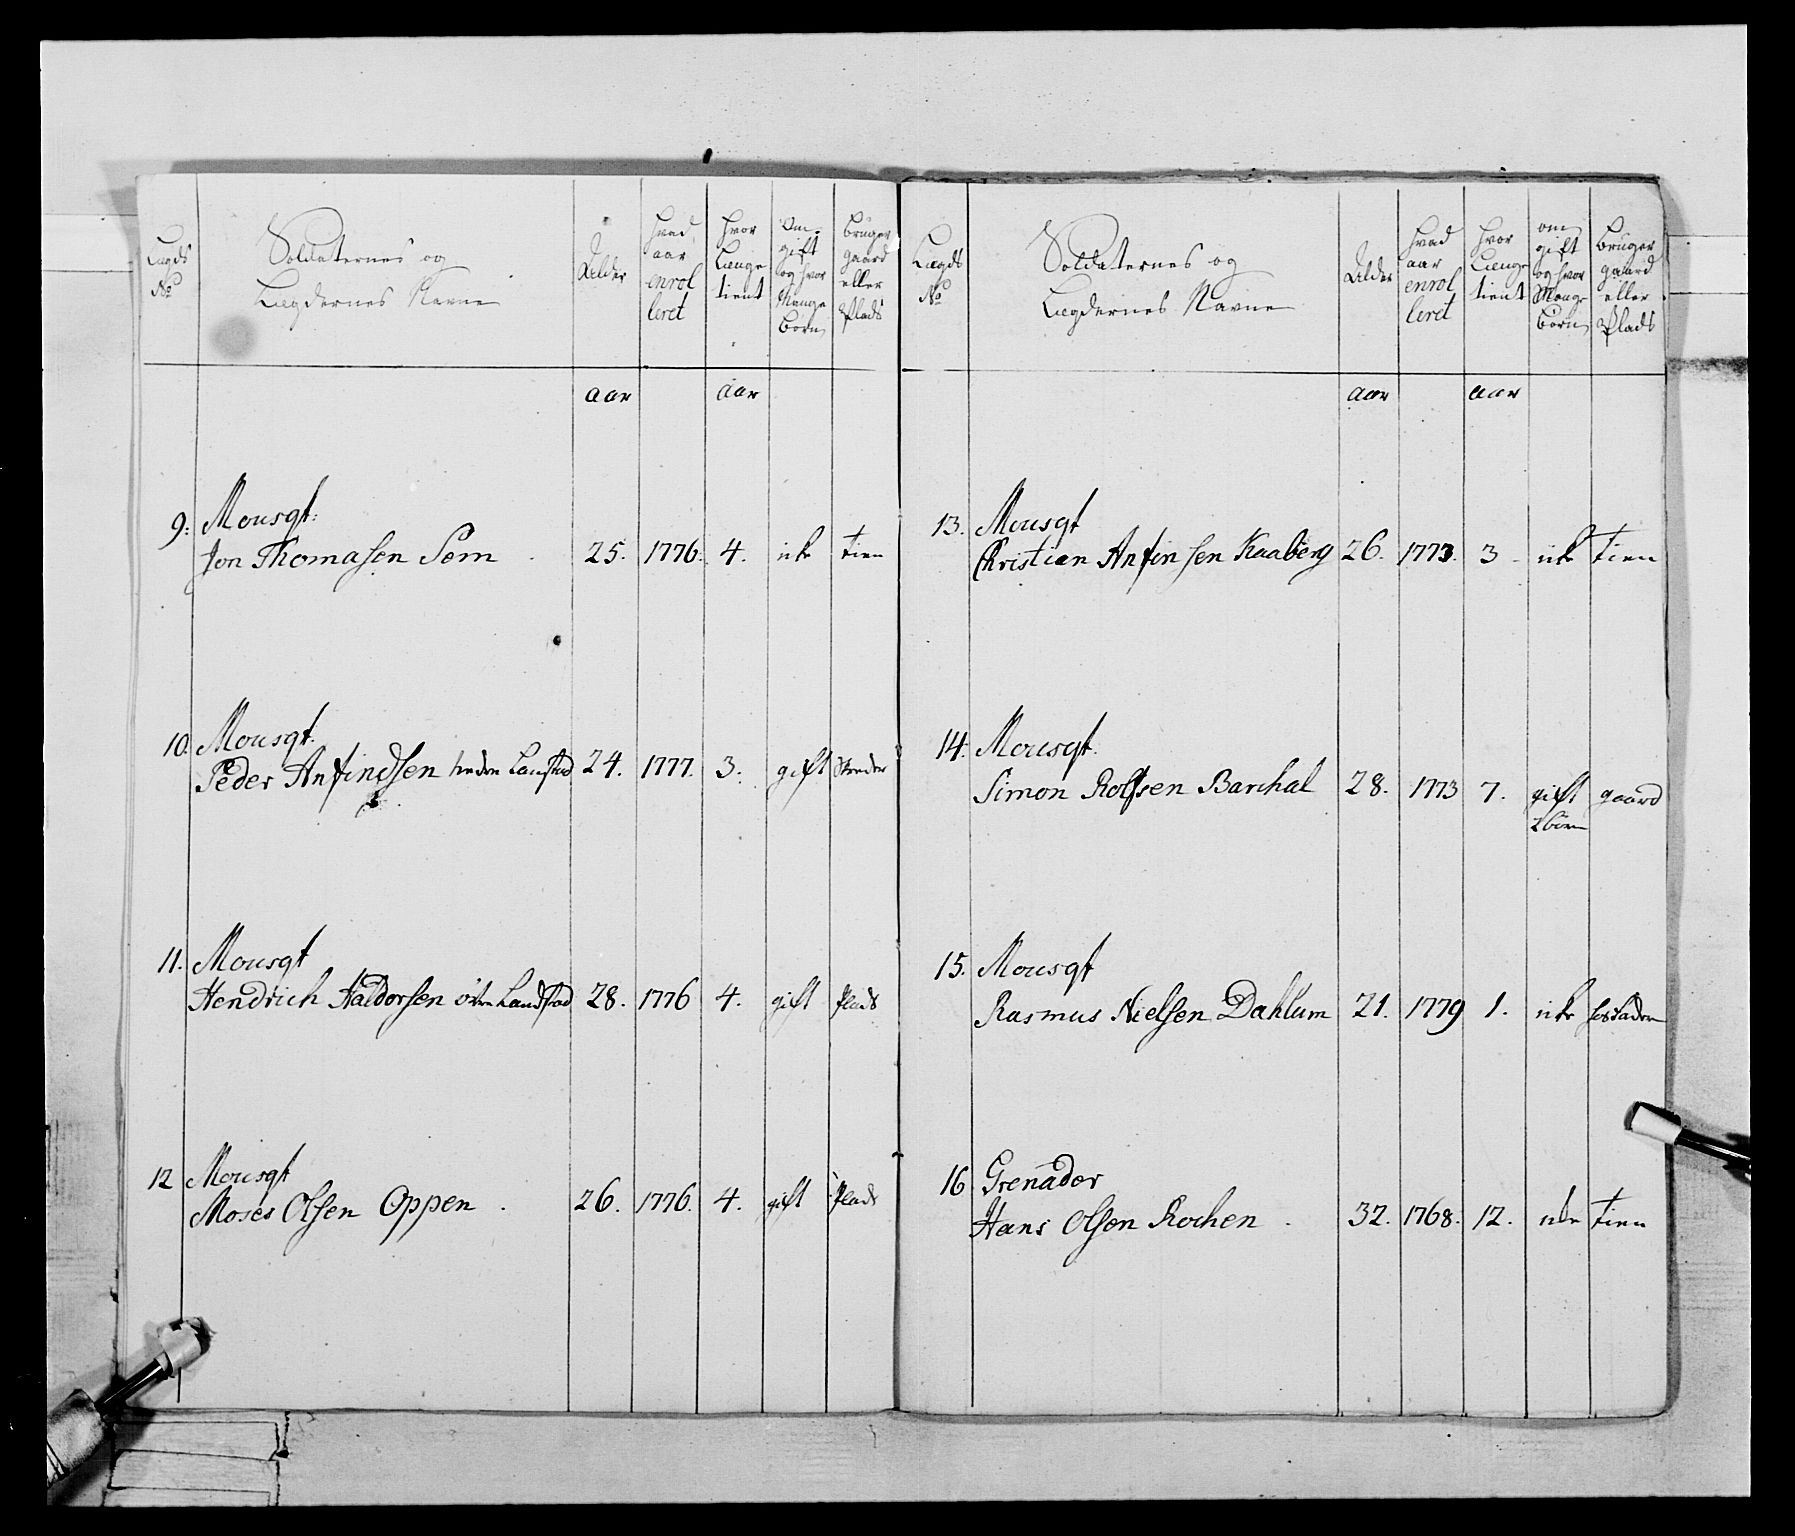 Lægds No
Soldaternes og
Lægdernes Navne
Alder
hvad aar enrolleret
hvor Længe tient
Om gift og hvor Mange börn
bruger gaard eller Plads
aar aar
9: Mousqt:
Jon Thomasen Sem 25. 1776. 4. ick tien
10. Mousqt.
Peder Anfindsen 24. 1777. 3. gift
11. Mousqt
Hendrich Haldorsen Landstad 28. 1776 4. gift Plads
12 Mousqt
Moses Olsen Oppen 26. 1776. 4. gift Plads
Lægds No
Soldaternes og
Lægdernes Navne
Alder
hvad aar enrolleret
hvor Længe tient
om gift og hvor Mange börn
bruger gaard eller Plads
aar aar
13. Mousqt
Christian Anfinsen Kaaberg 26. 1773. 3 ick tien
14. Mousqt.
Simon Rolfsen Barchal 28. 1773 7. gift gaard
2 börn
15. Mousqt
Rasmus Nielsen Dahlum 21. 1779 1. ick
16 Grenader
Hans Olsen Rochen 32. 1768. 12. tien